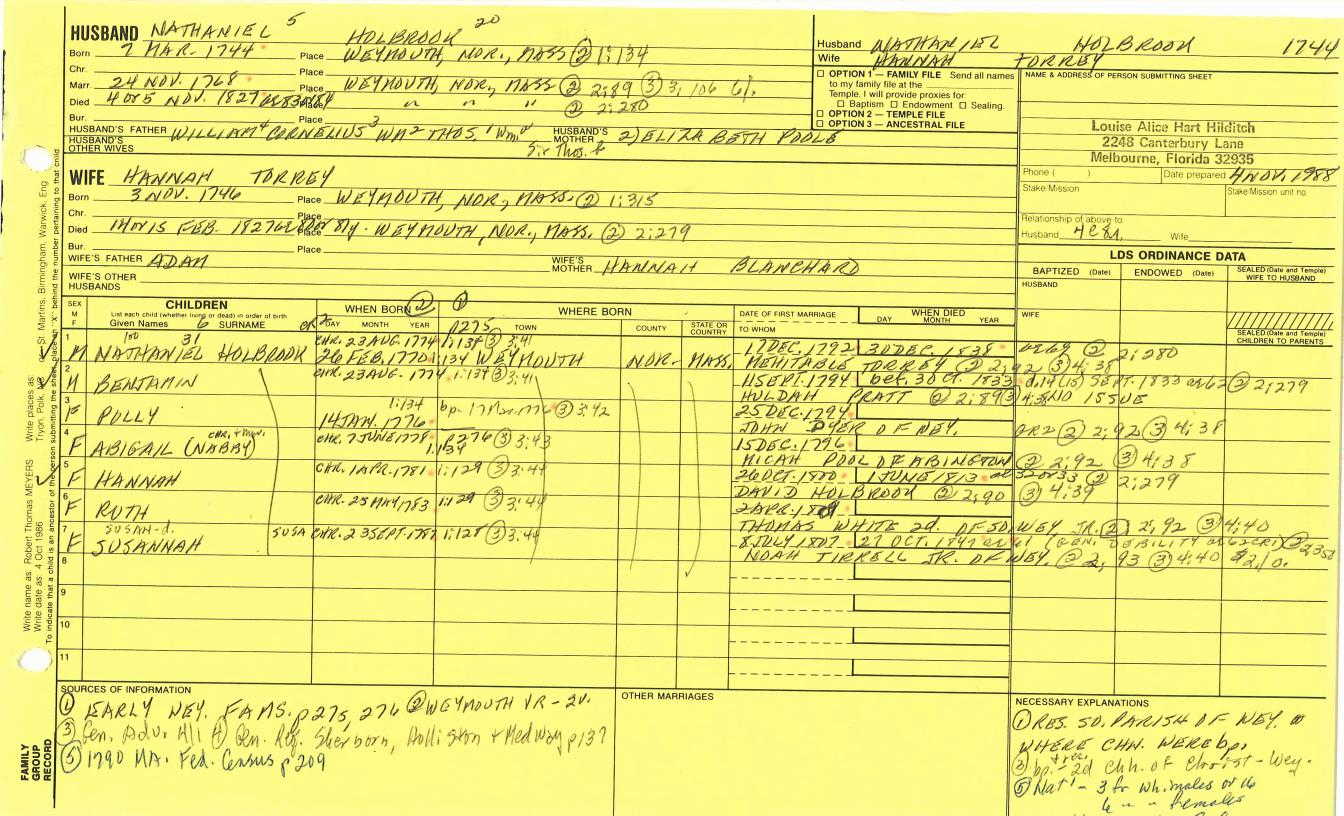 HUSBAND NATHANIEL 5 HOLBROOK 20
Born 7 MAR. 1744 Place WEYMOUTH, NOR., MASS ② 1:134
Chr. Place
Marr. 24 NOV. 1768 Place WEYMOUTH, NOR., MASS ② 2:89 ③ 3, 106
Died 4 or 5 NOV. 1827 Place " " " ② 2:280
Bur. Place
HUSBAND'S FATHER WILLIAM⁴ CORNELIUS³ WM² THOS.¹ HUSBAND'S MOTHER 2) ELIZABETH POOLE
HUSBAND'S OTHER WIVES Sir Thos.
WIFE HANNAH TORREY
Born 3 NOV. 1746 Place WEYMOUTH, NOR., MASS. ② 1:315
Chr. Place
Died 14 or 15 FEB. 1827 Place WEYMOUTH, NOR., MASS. ② 2:279
Bur. Place
WIFE'S FATHER ADAM WIFE'S MOTHER HANNAH BLANCHARD
WIFE'S OTHER HUSBANDS
Husband NATHANIEL HOLBROOK 1744
Wife HANNAH TORREY
☐ OPTION 1 — FAMILY FILE Send all names
to my family file at the
Temple. I will provide proxies for:
☐ Baptism ☐ Endowment ☐ Sealing.
☐ OPTION 2 — TEMPLE FILE
☐ OPTION 3 — ANCESTRAL FILE
NAME & ADDRESS OF PERSON SUBMITTING SHEET
Louise Alice Hart Hilditch
2248 Canterbury Lane
Melbourne, Florida 32935
Phone ( ) Date prepared 4 NOV. 1988
Stake Mission Stake/Mission unit no.
Relationship of above to
Husband Wife
LDS ORDINANCE DATA
BAPTIZED (Date) ENDOWED (Date) SEALED (Date and Temple) WIFE TO HUSBAND
HUSBAND
WIFE
SEALED (Date and Temple) CHILDREN TO PARENTS
SEX M F
CHILDREN
List each child (whether living or dead) in order of birth
Given Names 6 SURNAME
WHEN BORN ②
DAY MONTH YEAR
① p275
WHERE BORN
TOWN COUNTY STATE OR COUNTRY
DATE OF FIRST MARRIAGE
TO WHOM
WHEN DIED
DAY MONTH YEAR
1 M NATHANIEL HOLBROOK 31 CHR. 23 AUG. 1774 1:134 ③ 3:41 17 DEC. 1792 30 DEC. 1838 ② 2:280
26 FEB. 1770 1:134 WEYMOUTH NOR. MASS. MEHITABLE TORREY ② 2:92 ③ 4:38
2 M BENJAMIN CHR. 23 AUG. 1774 1:134 ③ 3:41 11 SEPT. 1794 bet. 30 Oct. 1833 d. 14 (15) SEPT. 1833 ② 2:279
HULDAH PRATT ② 2:89 ③ 4:38 NO ISSUE
3 F POLLY 14 JAN. 1776 1:134 bp. 17 Mar. 1776 ③ 3:42 25 DEC. 1794
JOHN DYER OF WEY. ② 2:92 ③ 4:38
4 F ABIGAIL (NABBY) CHR. 7 JUNE 1778 1:134 p276 ③ 3:43 15 DEC. 1796
MICAH POOL OF ABINGTON ② 2:92 ③ 4:38
5 F HANNAH CHR. 1 APR. 1781 1:129 ③ 3:44 26 OCT. 1800 1 JUNE 1813 ② 2:279
DAVID HOLBROOK ② 2:90 ③ 4:39
6 F RUTH CHR. 25 MAY 1783 1:129 ③ 3:44 2 APR.
THOMAS WHITE 2d. OF SO. WEY JR. ② 2:92 ③ 4:40
7 F SUSANNAH SUSAN-d. SUSA CHR. 23 SEPT. 1787 1:128 ③ 3:44 8 JULY 1807 27 OCT. (GEN. DEBILITY
NOAH TIRRELL JR. OF WEY. ② 2, 93 ③ 4:40
8
9
10
11
SOURCES OF INFORMATION
① EARLY WEY. FAMS. p275, 276 ② WEYMOUTH VR - 2v.
③ Gen. Adv. ④ Gen. Reg. Sherborn, Holliston & Medway p137
⑤ 1790 MA. Fed. Census p209
OTHER MARRIAGES
NECESSARY EXPLANATIONS
① RES. SO. PARISH OF WEY.
WHERE CHN. WERE bp.
③ bp. - 2d Chh. of Christ - Wey.
⑤ Nat'l - 3 fr. wh. males or 16
" " females
Write name as: Robert Thomas MEYERS Write places as: Tryon, Polk, St. Martins, Birmingham, Warwick, Eng
Write date as: 4 Oct 1986
To indicate that a child is an ancestor of the person submitting the sheet, place an "X" behind the number pertaining to that child.
FAMILY GROUP RECORD